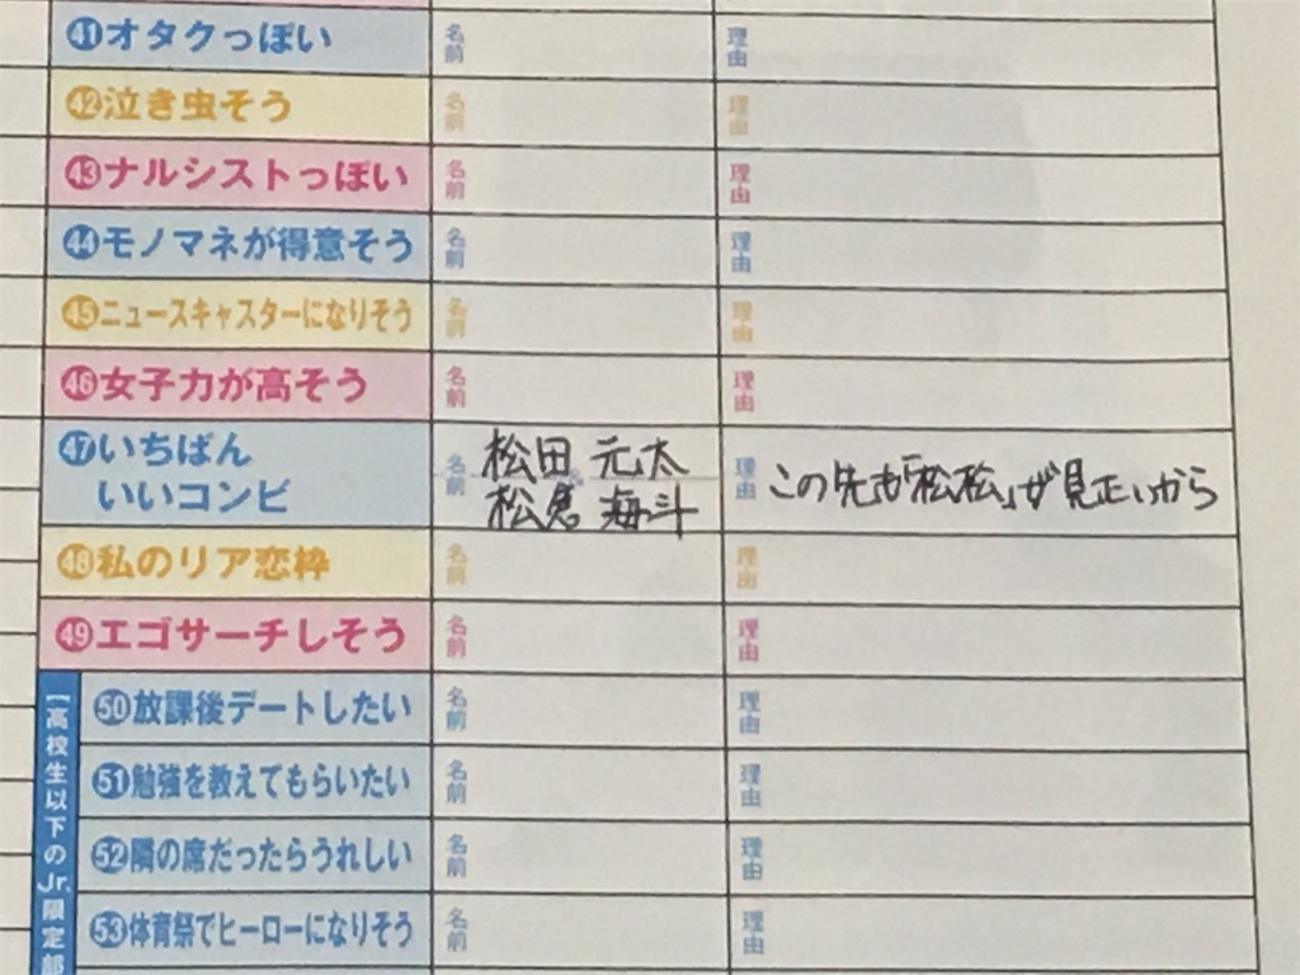 ㊶オタクっぽい 名前 理由
㊷泣き虫そう 名前 理由
㊸ナルシストっぽい 名前 理由
㊹モノマネが得意そう 名前 理由
㊺ニュースキャスターになりそう 名前 理由
㊻女子力が高そう 名前 理由
㊼いちばん
いいコンビ
名前 松田 元太
松倉 海斗
理由 この先も「松松」が見正いから
㊽私のリア恋枠 名前 理由
㊾エゴサーチしそう 名前 理由
【高校生以下のJr.限定部
㊿放課後デートしたい 名前 理由
51勉強を教えてもらいたい 名前 理由
52隣の席だったらうれしい 名前 理由
53体育祭でヒーローになりそう 名前 理由